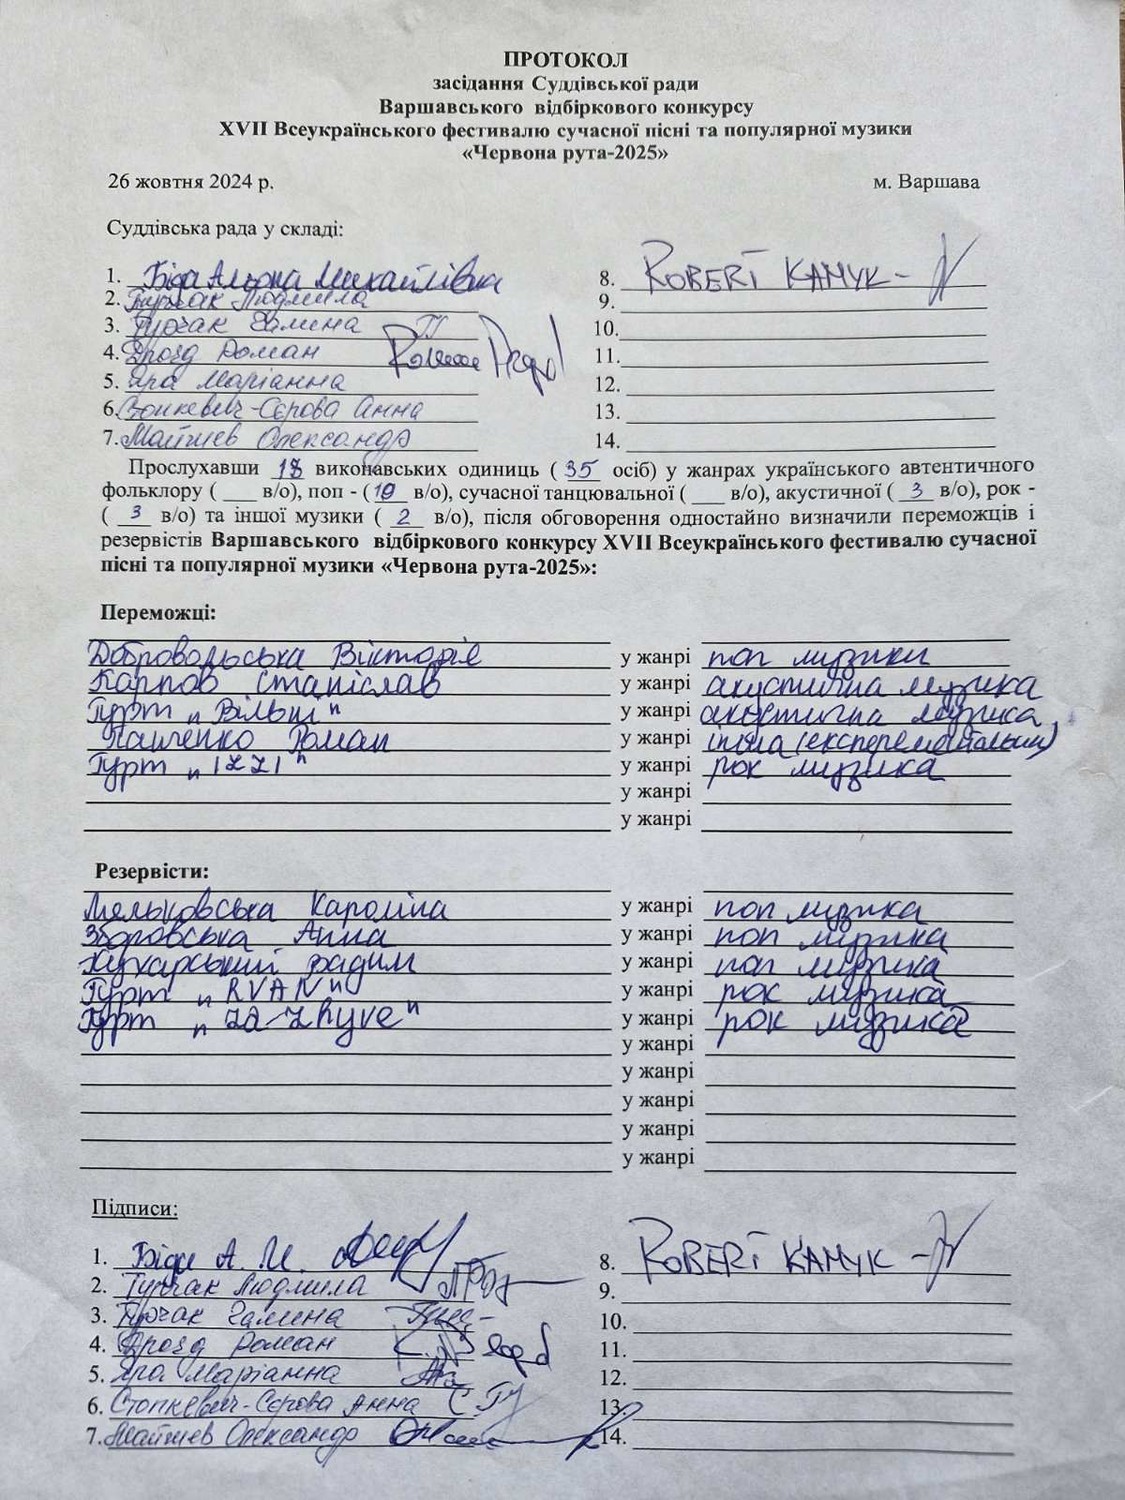 ПРОТОКОЛ
засідання Суддівської ради
Варшавського відбіркового конкурсу
XVII Всеукраїнського фестивалю сучасної пісні та популярної музики
«Червона рута-2025»
26 жовтня 2024 р. м. Варшава
Суддівська рада у складі:
1. Біда Альона Михайлівна 8. ROBERT KAMYK
2. Турчак Людмила 9.
3. Турчак Галина 10.
4. Дрозд Роман 11.
5. Яра Маріанна 12.
6. -Сєрова Анна 13.
7. Олександр 14.
Прослухавши 18 виконавських одиниць ( 35 осіб) у жанрах українського автентичного
фольклору ( ___ в/о), поп - (10 в/о), сучасної танцювальної ( ___ в/о), акустичної ( 3 в/о), рок -
( 3 в/о) та іншої музики ( 2 в/о), після обговорення одностайно визначили переможців і
резервістів Варшавського відбіркового конкурсу XVII Всеукраїнського фестивалю сучасної
пісні та популярної музики «Червона рута-2025»:
Переможці:
Добровольська Вікторія у жанрі поп музики
Карпов Станіслав у жанрі акустична музика
Гурт „Вільні" у жанрі акустична музика
Панченко Роман у жанрі інша (експерементальна)
Гурт „IZZI" у жанрі рок музика
у жанрі
у жанрі
Резервісти:
Мельковська Кароліна у жанрі поп музика
Зборовська Анна у жанрі поп музика
Кухарський Вадим у жанрі поп музика
Гурт „RVAN" у жанрі рок музика
Гурт „Za-Zhyve" у жанрі рок музика
у жанрі
у жанрі
у жанрі
у жанрі
у жанрі
Підписи:
1. Біда А. М. 8. ROBERT KAMYK
2. Турчак Людмила 9.
3. Турчак Галина 10.
4. Дрозд Роман 11.
5. Яра Маріанна 12.
6. -Сєрова Анна 13.
7. Олександр 14.